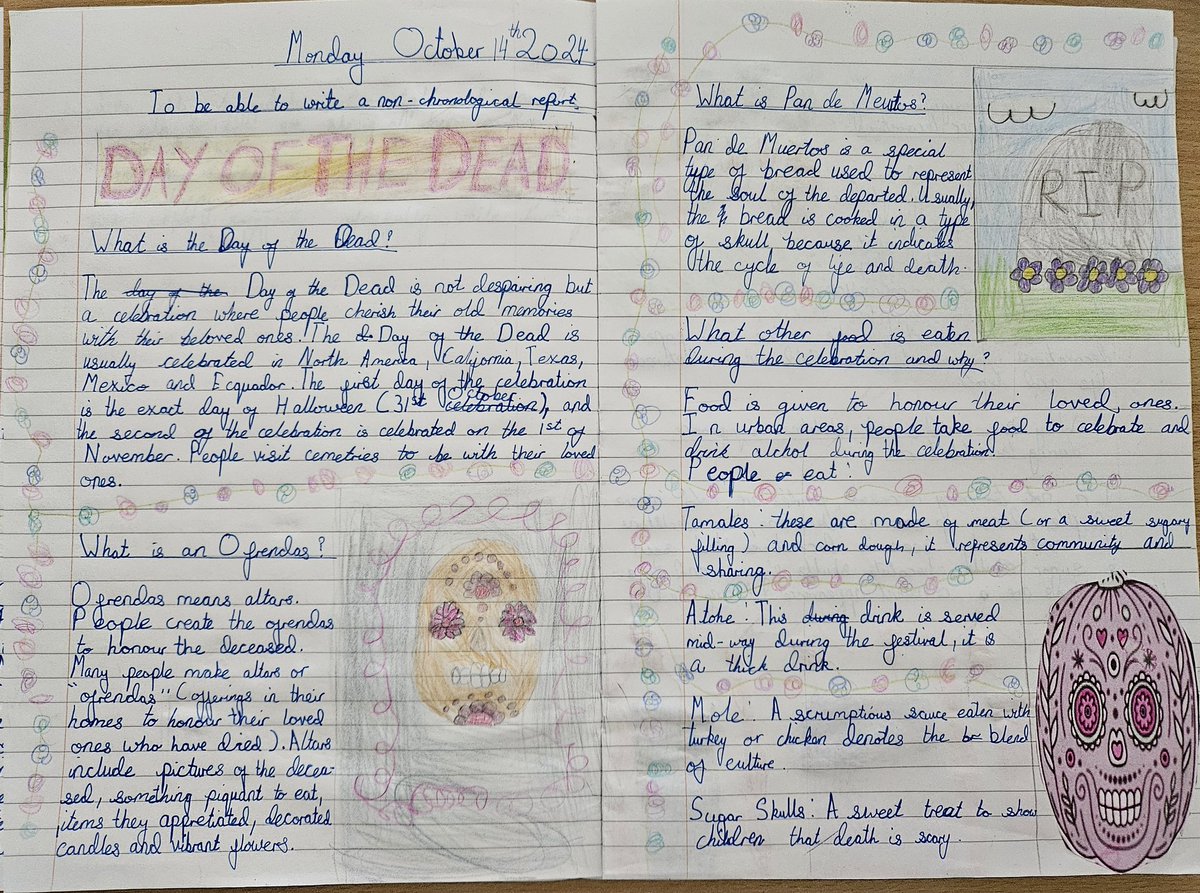 Monday October 14th 2024
To be able to write a non-chronological report.
DAY OF THE DEAD
What is the Day of the Dead?
The day of the Day of the Dead is not despairing but
a celebration where people cherish their old memories
with their beloved ones. The d Day of the Dead is
usually celebrated in North America, California, Texas,
Mexico and Ecquador. The first day of the celebration
is the exact day of Halloween (31st October celebration), and
the second of the celebration is celebrated on the 1st of
November. People visit cemetries to be with their loved
ones.
What is an Ofrendas?
Ofrendas means altars.
People create the ofrendas
to honour the deceased.
Many people make altars or
"ofrendas" (offerings in their
homes to honour their loved
ones who have died). Altars
include pictures of the decea-
sed, something piquant to eat,
items they appretiated, decorated
candles and vibrant flowers.
What is Pan de Meurtos?
Pan de Muertos is a special
type of bread used to represent
the soul of the departed. Usually,
the bread is cooked in a type
of skull, because it indicates
the cycle of life and death.
RIP
What other food is eaten
during the celebration and why?
Food is given to honour their loved ones.
In urban areas, people take food to celebrate and
drink alchol during the celebration.
People eat:
Tamales: these are made of meat (or a sweet sugary
filling) and corn dough, it represents community and
sharing.
Atohe: This during drink is served
mid-way during the festival, it is
a thick drink.
Mole: A scrumptious sauce eaten with
turkey or chicken denotes the blend
of culture.
Sugar Skulls: A sweet treat to show
children that death is scary.